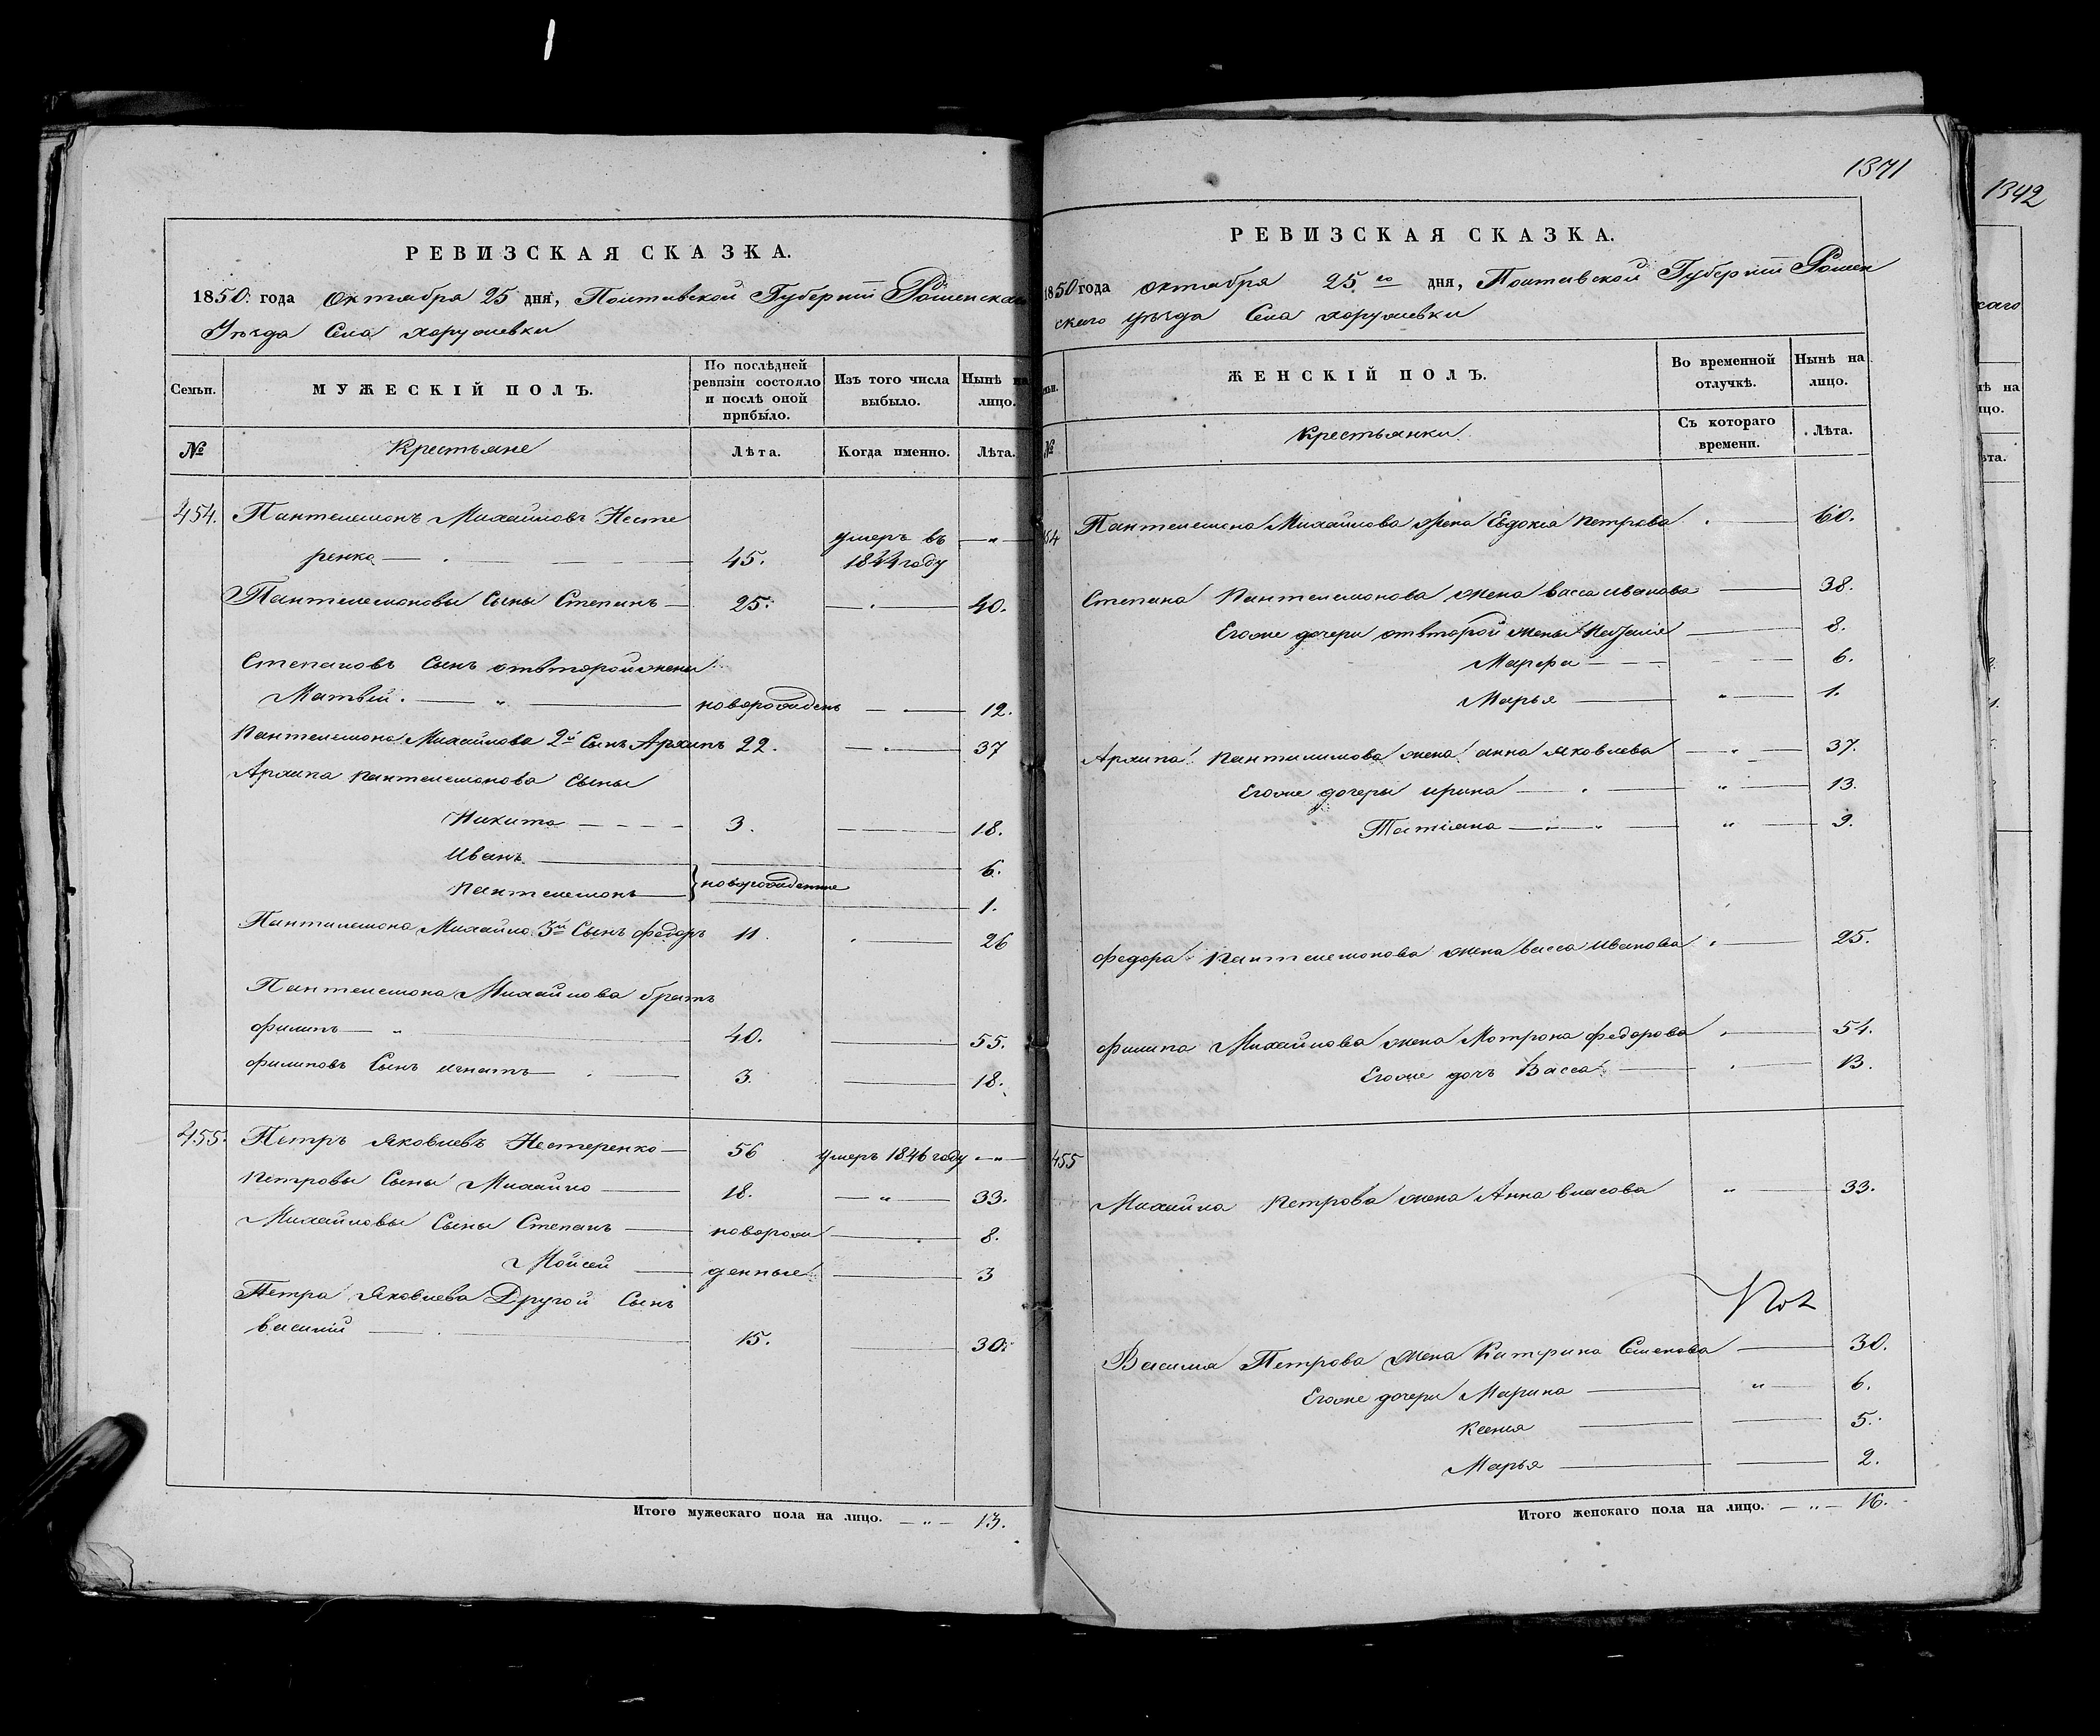 РЕВИЗСКАЯ СКАЗКА.
1850. года Октября 25 дня, Полтавской Губернiи Роменскаго
Уѣзда Села Хоружевки
Семьи.
МУЖЕСКIЙ ПОЛЪ.
По послѣдней ревизiи состояло и послѣ оной прибыло.
Изъ того числа выбыло.
Нынѣ на лицо.
№
Крестьяне
Лѣта.
Когда именно.
Лѣта.
454. Пантелемонъ Михайловъ Несте
ренко — 45. умеръ въ 1844 году — " —
Пантелемоновы Сыны Степанъ — 25. — 40.
Степановъ Сынъ отъ второй жены
Матвѣй. — " — новорожденъ — 12.
Пантелемона Михайлова 2й Сынъ Архипъ 22. — 37
Архипа Пантелемонова Сыны
Никита — 3. — 18.
Иванъ — 6.
Пантелемонъ — } новорожденные 1.
Пантилемона Михайло. 3й Сынъ Федоръ 11. — 26
Пантелемона Михайлова братъ
Филипъ — " — 40. — 55.
Филиповъ Сынъ Игнатъ — 3. — 18.
455. Петръ Яковлевъ Нестеренко — 56 умеръ 1846 году — " —
Петровы Сыны Михайло — 18. — " — 33.
Михайловы Сыны Степанъ — новорож — 8.
Мойсей — денные — 3
Петра Яковлева Другой Сынъ
Василiй — 15. — 30.
Итого мужескаго пола на лицо. — " — 13.
1371
РЕВИЗСКАЯ СКАЗКА.
1850 года октября 25 го дня, Полтавской Губернiи Ромен
скаго уѣзда Села Хоружевки
ЖЕНСКIЙ ПОЛЪ.
Во временной отлучкѣ.
Нынѣ на лицо.
№
Крестьянки.
Съ котораго времени.
Лѣта.
54 Пантелемона Михайлова жена Евдокiя Петрова — 60.
Степана Пантелемонова жена Васса Иванова — 38.
Егоже дочери отъ второй жены — 8.
Марфа — 6.
Марья — " — 1.
Архипа Пантилимова жена Анна Яковлева — " — 37.
Егоже дочеры Ирина — " — 13.
Татiяна — " — 9.
Федора Пантелемонова жена Васса Иванова — 25.
Филипа Михайлова жена Мотрона Федорова — 54.
Егоже дочъ Васса — 13.
455
Михайла Петрова жена Анна Власова " — 33.
Василия Петрова жена Катерина Семенова — 30.
Егоже дочери Марина — " — 6.
Ксения — 5.
Марья — 2.
Итого женскаго пола на лицо. — " — 16.
1342
каго